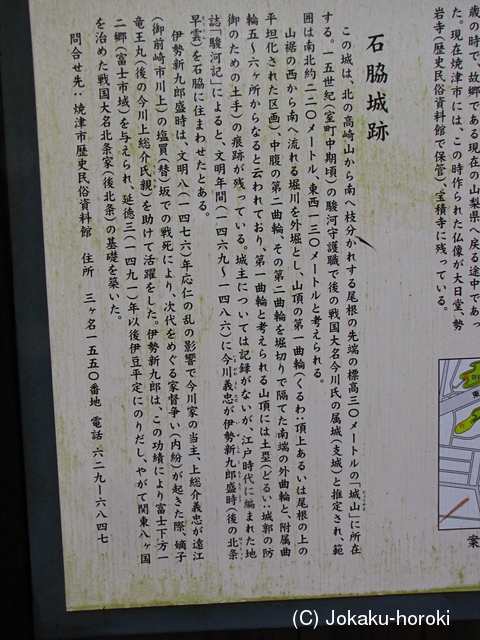 歳の時で、故郷である現在の山梨県へ戻る途中であっ
た。現在焼津市には、この時作られた仏像が大日堂、勢
岩寺(歴史民俗資料館で保管)、宝積寺に残っている。
石脇城跡
この城は、北の高崎山から南へ枝分かれする尾根の先端の標高三〇メートルの「城山」に所在
する。一五世紀(室町中期頃)の駿河守護職で後の戦国大名今川氏の属城(支城)と推定され、範
囲は南北約二二〇メートル、東西一三〇メートルと考えられる。
山裾の西から南へ流れる堀川を外堀とし、山頂の第一曲輪(くるわ:頂上あるいは尾根の上の
平坦化された区画)、中腹の第二曲輪、その第二曲輪を堀切りで隔てた南端の外曲輪と、附属曲
輪五〜六ヶ所からなると云われており、第一曲輪と考えられる山頂には土塁(どるい:城郭の防
御のための土手)の痕跡が残っている。城主については記録がないが、江戸時代に編まれた地
誌「駿河記」によると、文明年間(一四六九〜一四八六)に今川義忠が伊勢新九郎盛時(後の北条
早雲)を石脇に住まわせたとある。
伊勢新九郎盛時は、文明八(一四七六)年応仁の乱の影響で今川家の当主、上総介義忠が遠江
(御前崎市川上)の塩買(替)坂での戦死により、次代をめぐる家督争い(内紛)が起きた際、嫡子
竜王丸(後の今川上総介氏親)を助けて活躍をした。伊勢新九郎は、この功績により富士下方一
二郷(富士市域)を与えられ、延徳三(一四九一)年以後伊豆平定にのりだし、やがて関東八ヶ国
を治めた戦国大名北条家(後北条)の基礎を築いた。
問合せ先:焼津市歴史民俗資料館 住所 三ヶ名一五五〇番地 電話 六二九ー六八四七
案
(C) Jokaku-horoki